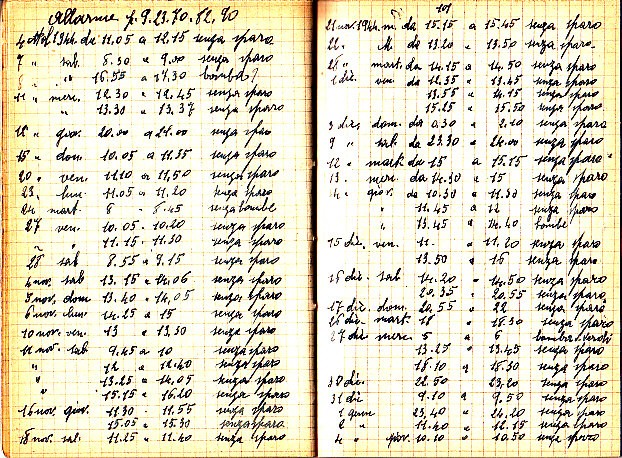 Allarme f. 9. 23. 70. 82. 90
4 Ott. 1944 da 11.05 a 12.15 senza sparo
7 " sab. 8.30 a 9.00 senza sparo
" 16.55 a 17.30 bombe?
11 " merc. 12.30 a 12.45 senza sparo
" 13.30 a 13.37 senza sparo
12 " giov. 20.00 a 21.00 senza sparo
15 " dom. 10.05 a 11.55 senza sparo
20 " ven. 11.10 a 11.50 senza sparo
23 " lun. 11.05 a 11.20 senza sparo
24 mart. 8 - 8.45 senza bombe
27 ven. 10.05 - 10.20 senza sparo
" 11.15 - 11.30 senza sparo
28 sab 8.55 a 9.15 senza sparo
4 nov. sab 13.15 a 14.06 senza sparo
5 nov. dom 13.40 a 14.05 senza sparo
6 nov. lun. 14.25 a 15 senza sparo
10 nov. ven. 13 a 13.30 senza sparo
11 nov. sab 9.45 a 10 senza sparo
" 12 a 12.40 senza sparo
" 13.25 a 14.05 senza sparo
" 15.15 a 16.20 senza sparo
16 nov. giov. 11.30 - 11.55 senza sparo
15.05 a 15.30 senza sparo
18 nov. sab. 11.25 a 11.40 senza sparo
101
21 nov. 1944 m. da 15.15 a 15.45 senza sparo
22 " M da 13.20 a 13.50 senza sparo
28 " mart. da 14.15 a 14.50 senza sparo
1 dic. ven. da 12.35 a 13.45 senza sparo
13.55 a 14.15 senza sparo
15.25 a 15.50 senza sparo
3 dic. dom. da 0.30 a 2.10 senza sparo
9 " sab da 23.30 a 24.00 senza sparo
12 " mart. da 15 a 15.15 senza sparo
13 " merc. da 14.30 a 15 senza sparo
14 " giov. da 10.30 a 11.30 senza sparo
" 11.45 a 12 senza sparo
" 13.45 a 14.40 bombe
15 dic. ven. 11. a 11.20 senza sparo
13.50 a 15 senza sparo
16 dic. sab 14.20 a 14.50 senza sparo
20.35 a 20.55 senza sparo
17 dic. dom. 20.55 a 22 senza sparo
26 dic. mart. 18 " 18.30 senza sparo
27 dic. merc. 5 a 6
13.27 a 13.45 senza sparo
18.10 a 18.30 senza sparo
30 dic. 22.50 " 23.20 senza sparo
31 dic 9.10 a 9.50 senza sparo
1 genn 23,40 " 24.20 senza sparo
2 " 11.40 a 12.15 senza sparo
4 " giov. 10.10 a 10.50 senza sparo